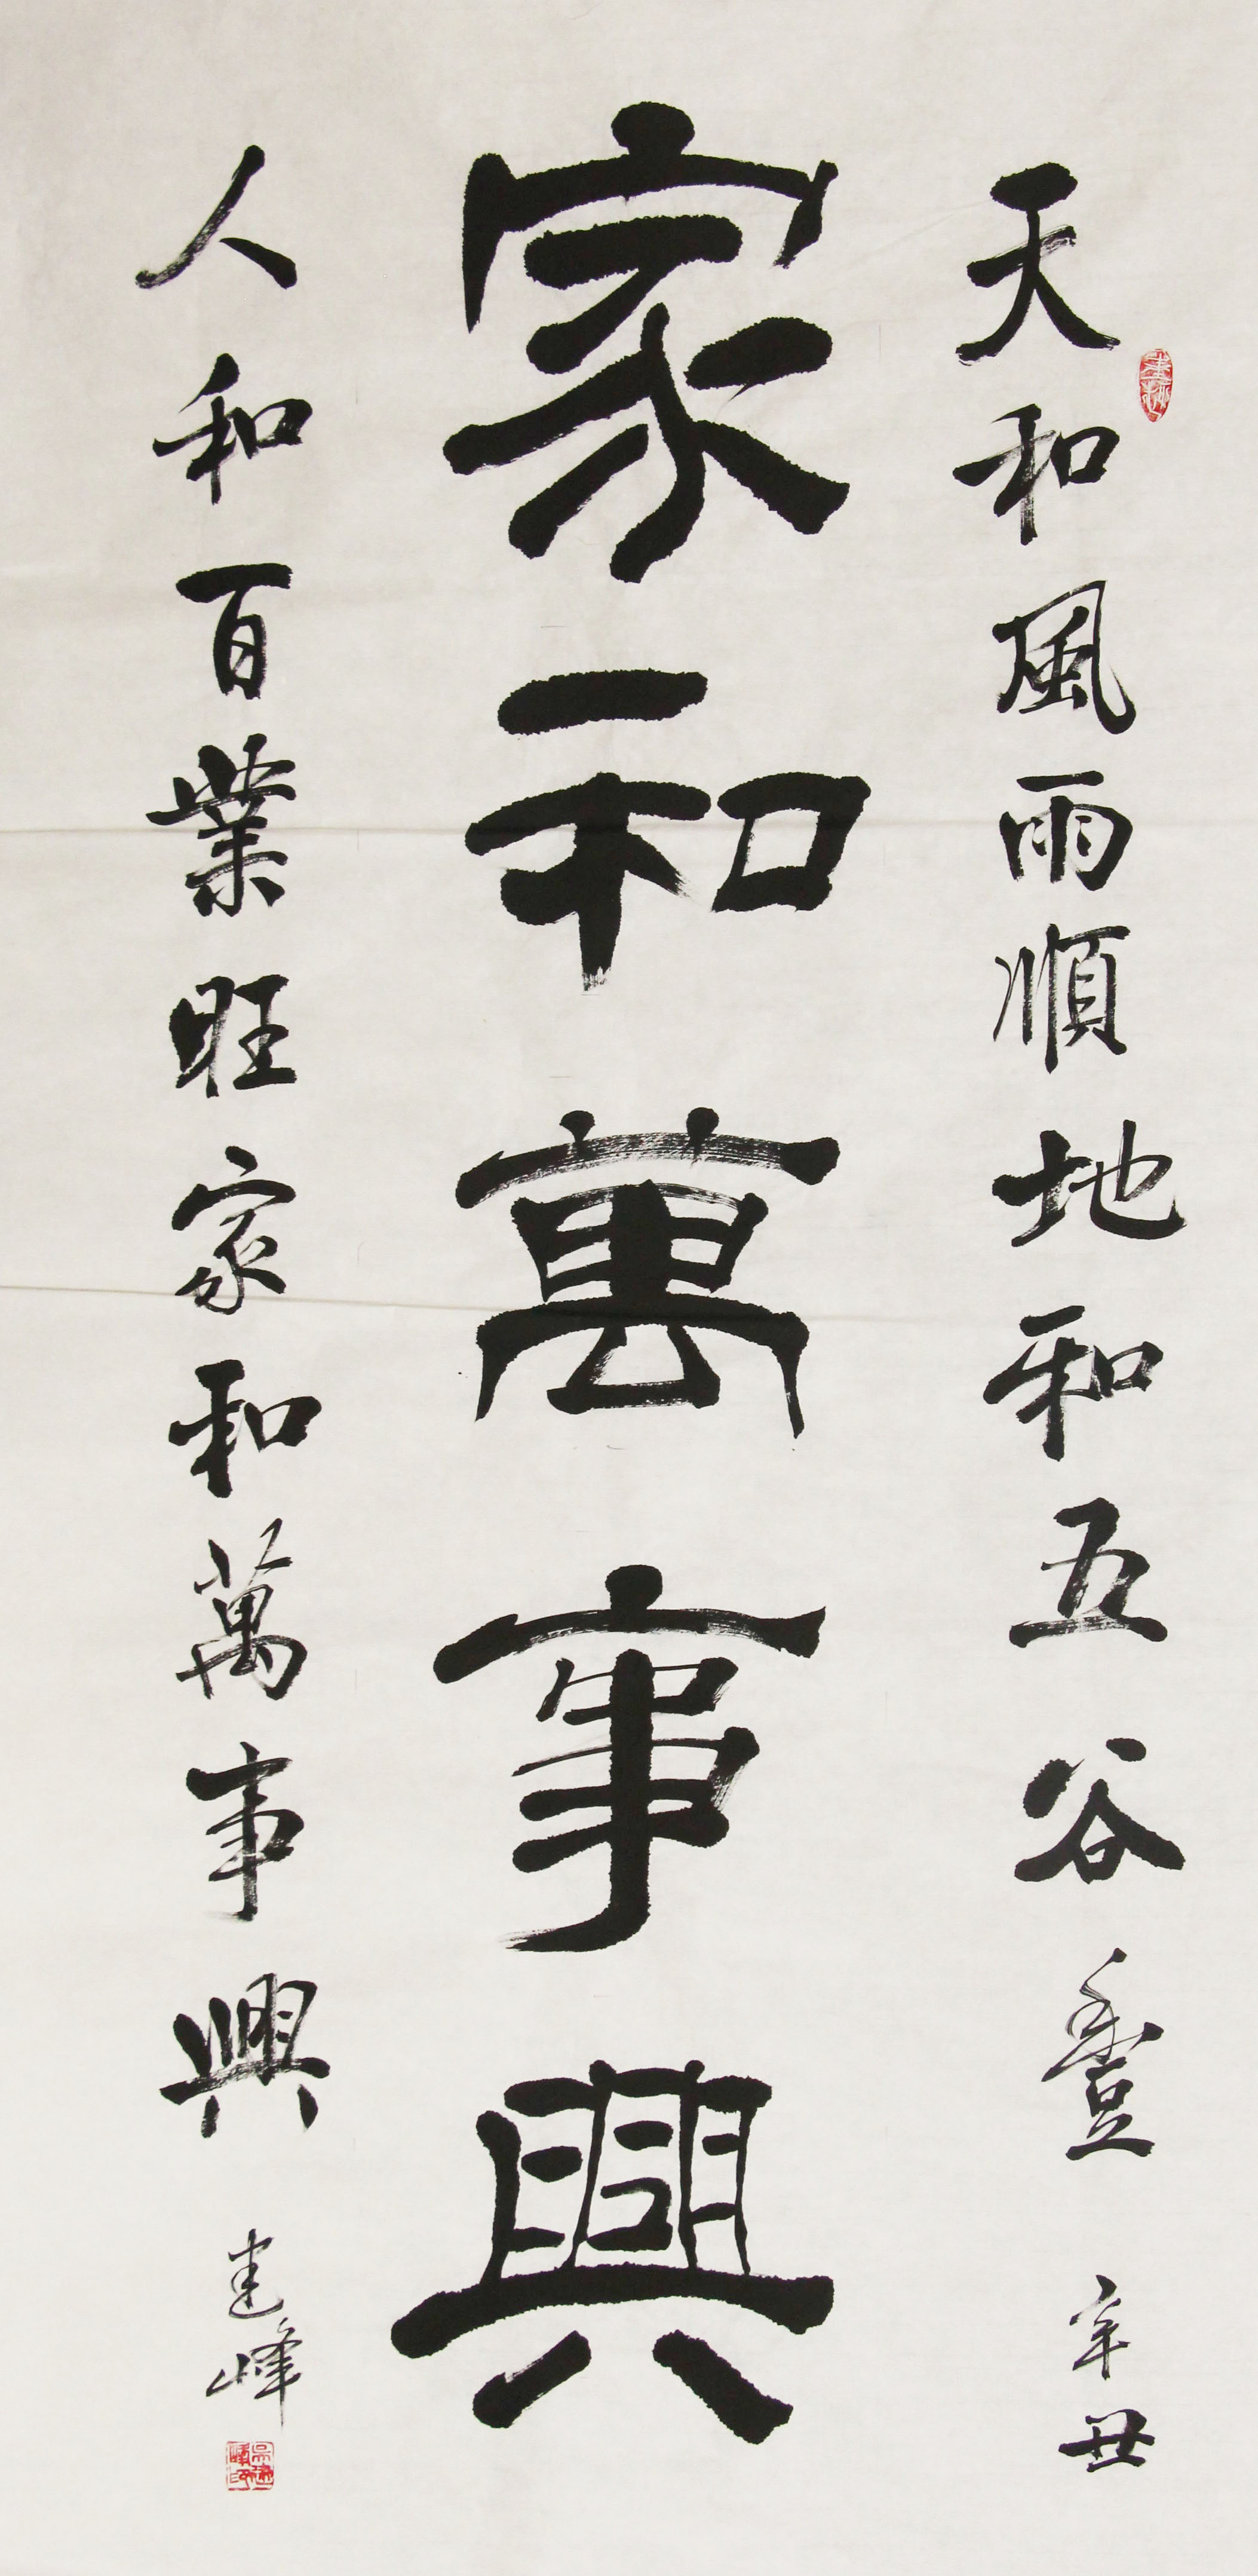 天和風雨順地和五谷豐 辛丑
家和萬事興
人和百業旺家和萬事興 建峰